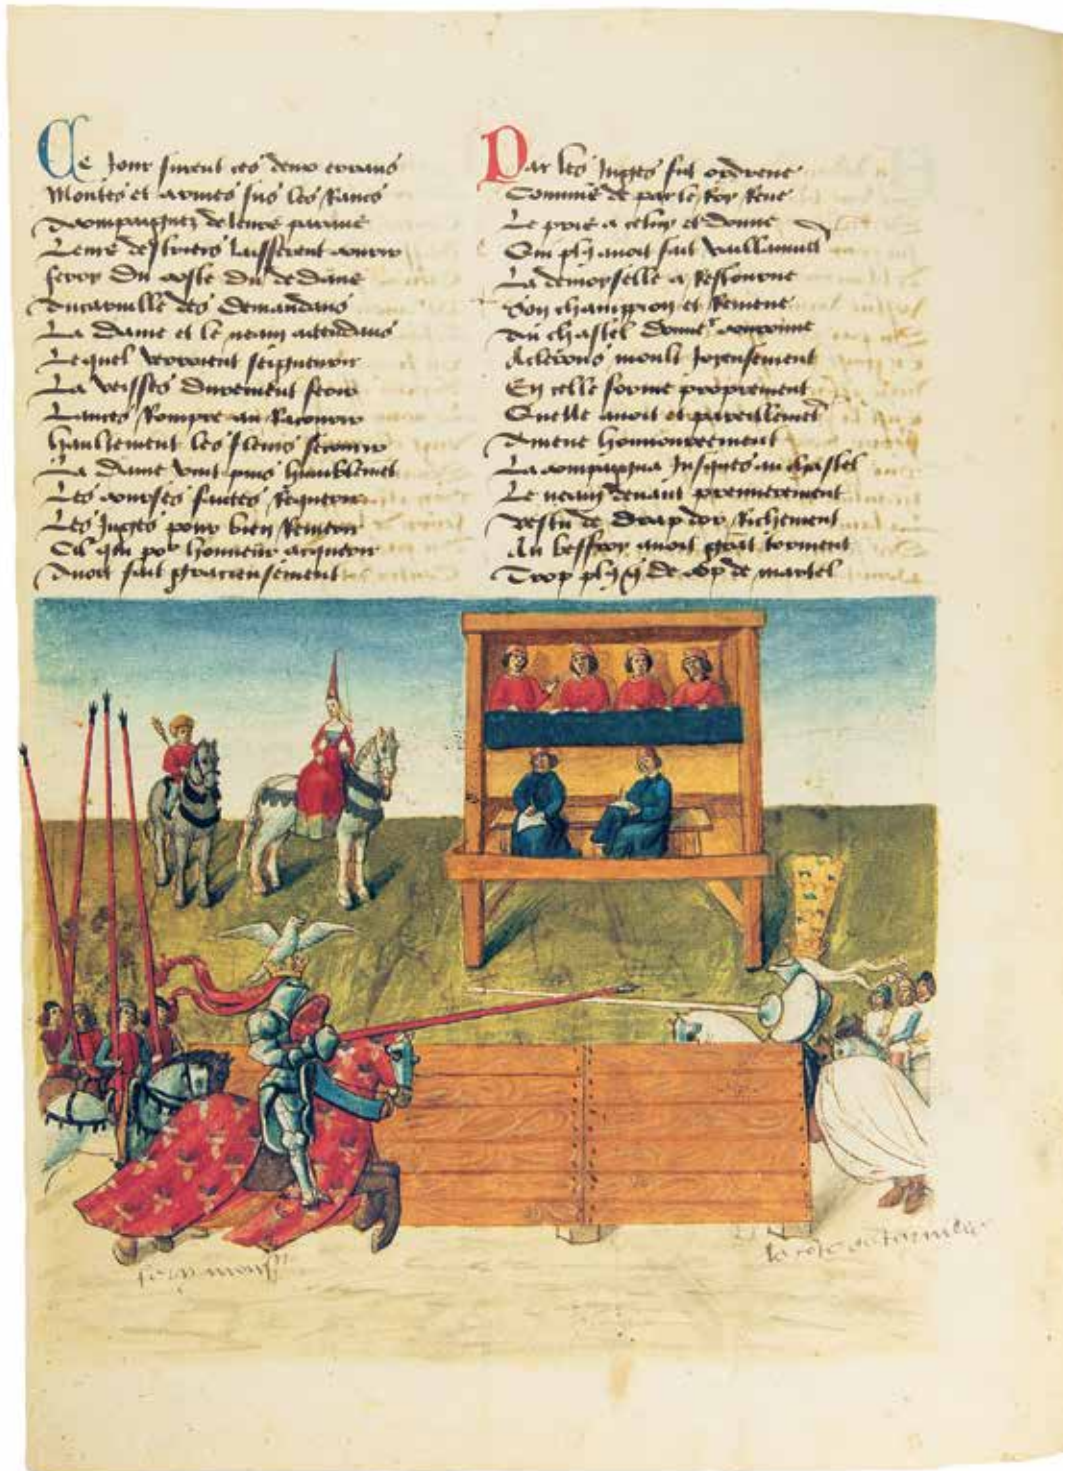 Ce jour furent ces deux errans
Montes et armes sus les Rans
Acompaignez de leurs parans
Leurs destriers laisserent courir
ferry du coste du dedans
Tancarville des demandans
La dame et le neam attendans
Lequel verroient seigneurir
La veissés durement ferir
Lances Rompre au Racourir
haultement les siens secourir
La dame vint puis humblemet
Les courses faictes Requerir
Les Juges pour bien Remerir
Cil qui por honneur acquerir
Avoit fait gracieusement
Par les Juges fut ordrene
Comme de par le Roy Rene
Le pris a celuy et donne
Qui plus avoit fait vaillammet
La demoyselle a Restourne
Son champion et Remene
Au chastel
moult joyeusement
En celle forme proprement
Quelle avoit et pareillemet
Amene honnoureement
La compaigna jusques au chastel
Le neam devant premierement
vestu de drap dor Richement
Au beffroy avoit grat torment
Trop plus de cop de martel
ferry mons
la coste de tancarville